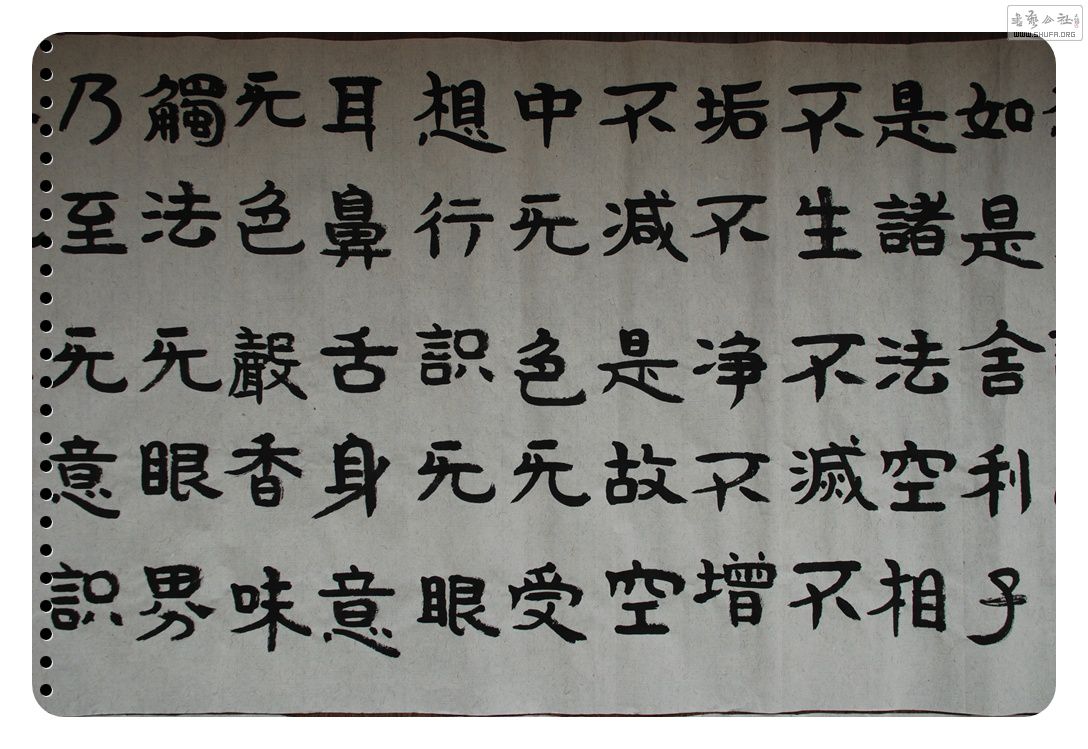 如是舍利子
是諸法空相
不生不滅不
垢不净不增
不減是故空
中无色无受
想行識无眼
耳鼻舌身意
无色聲香味
觸法无眼界
乃至无意識
書藝公社
WWW.SHUFA.ORG